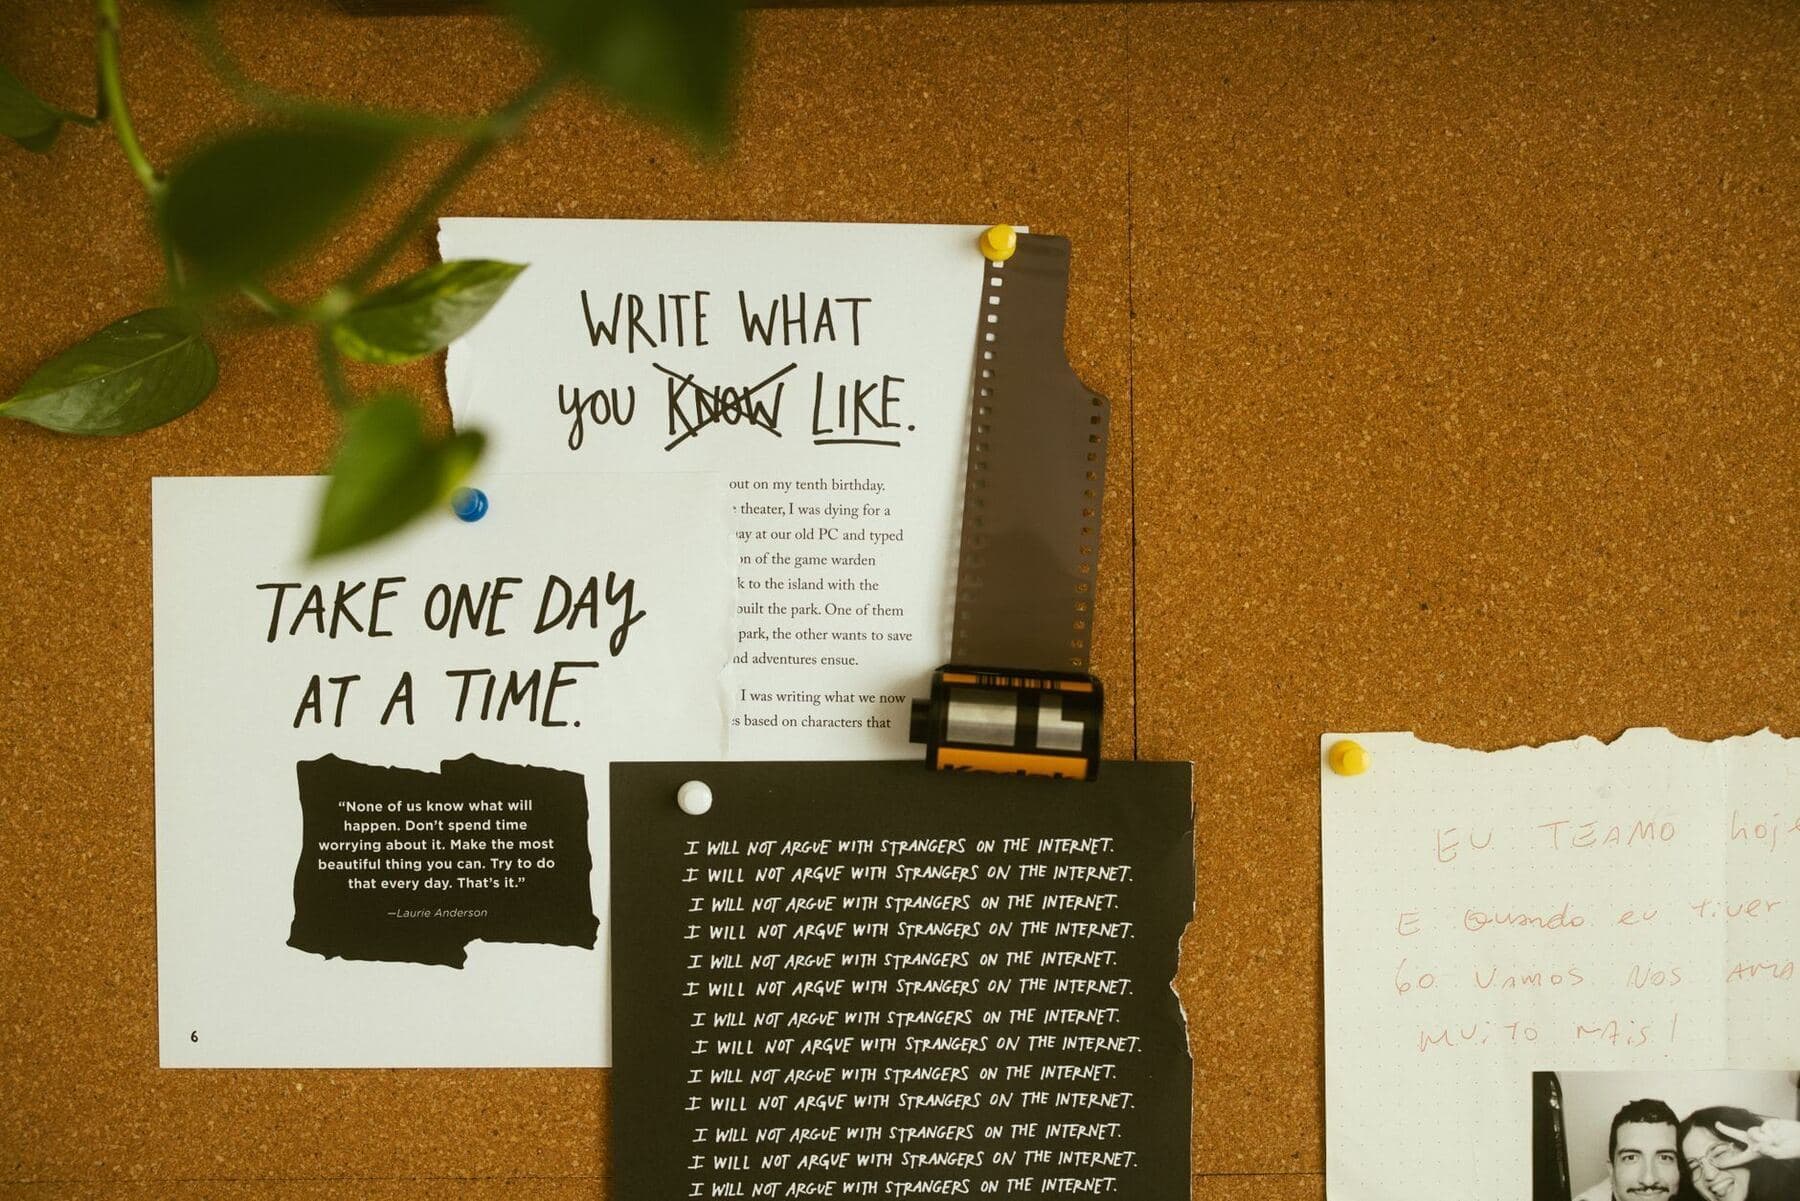 WRITE WHAT
YOU KNOW LIKE.
out on my tenth birthday.
theater, I was dying for a
at our old PC and typed
of the game warden
to the island with the
built the park. One of them
park, the other wants to save
adventures ensue.
I was writing what we now
based on characters that
TAKE ONE DAY
AT A TIME.
“None of us know what will
happen. Don’t spend time
worrying about it. Make the most
beautiful thing you can. Try to do
that every day. That’s it.”
—Laurie Anderson
6
Kodak
I WILL NOT ARGUE WITH STRANGERS ON THE INTERNET.
I WILL NOT ARGUE WITH STRANGERS ON THE INTERNET.
I WILL NOT ARGUE WITH STRANGERS ON THE INTERNET.
I WILL NOT ARGUE WITH STRANGERS ON THE INTERNET.
I WILL NOT ARGUE WITH STRANGERS ON THE INTERNET.
I WILL NOT ARGUE WITH STRANGERS ON THE INTERNET.
I WILL NOT ARGUE WITH STRANGERS ON THE INTERNET.
I WILL NOT ARGUE WITH STRANGERS ON THE INTERNET.
I WILL NOT ARGUE WITH STRANGERS ON THE INTERNET.
I WILL NOT ARGUE WITH STRANGERS ON THE INTERNET.
I WILL NOT ARGUE WITH STRANGERS ON THE INTERNET.
I WILL NOT ARGUE WITH STRANGERS ON THE INTERNET.
I WILL NOT ARGUE WITH STRANGERS ON THE INTERNET.
EU TEAMO hoje
E Quando eu tiver
60 VAMOS NOS AMA
MUITO MAIS!